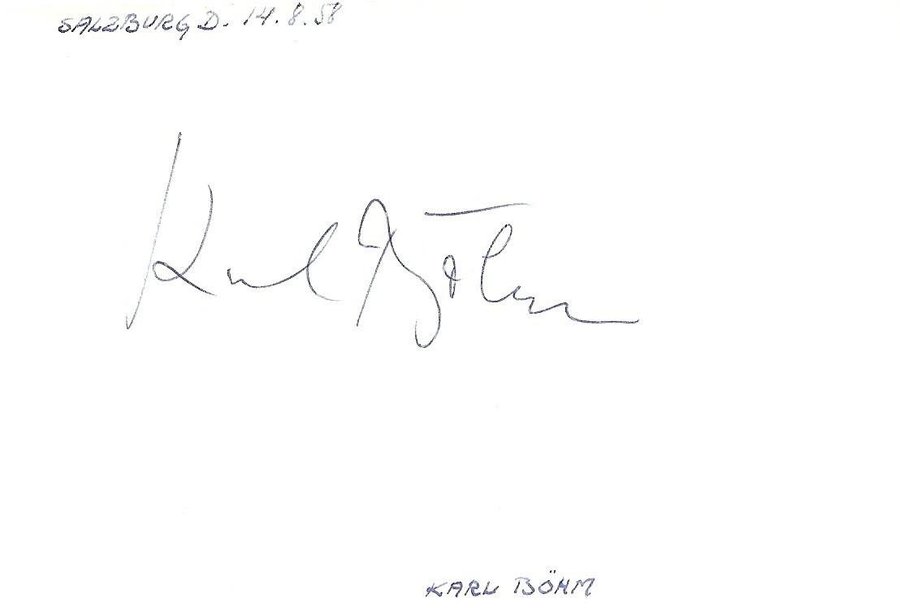 SALZBURG D. 14.8.58
Karl Böhm
KARL BÖHM